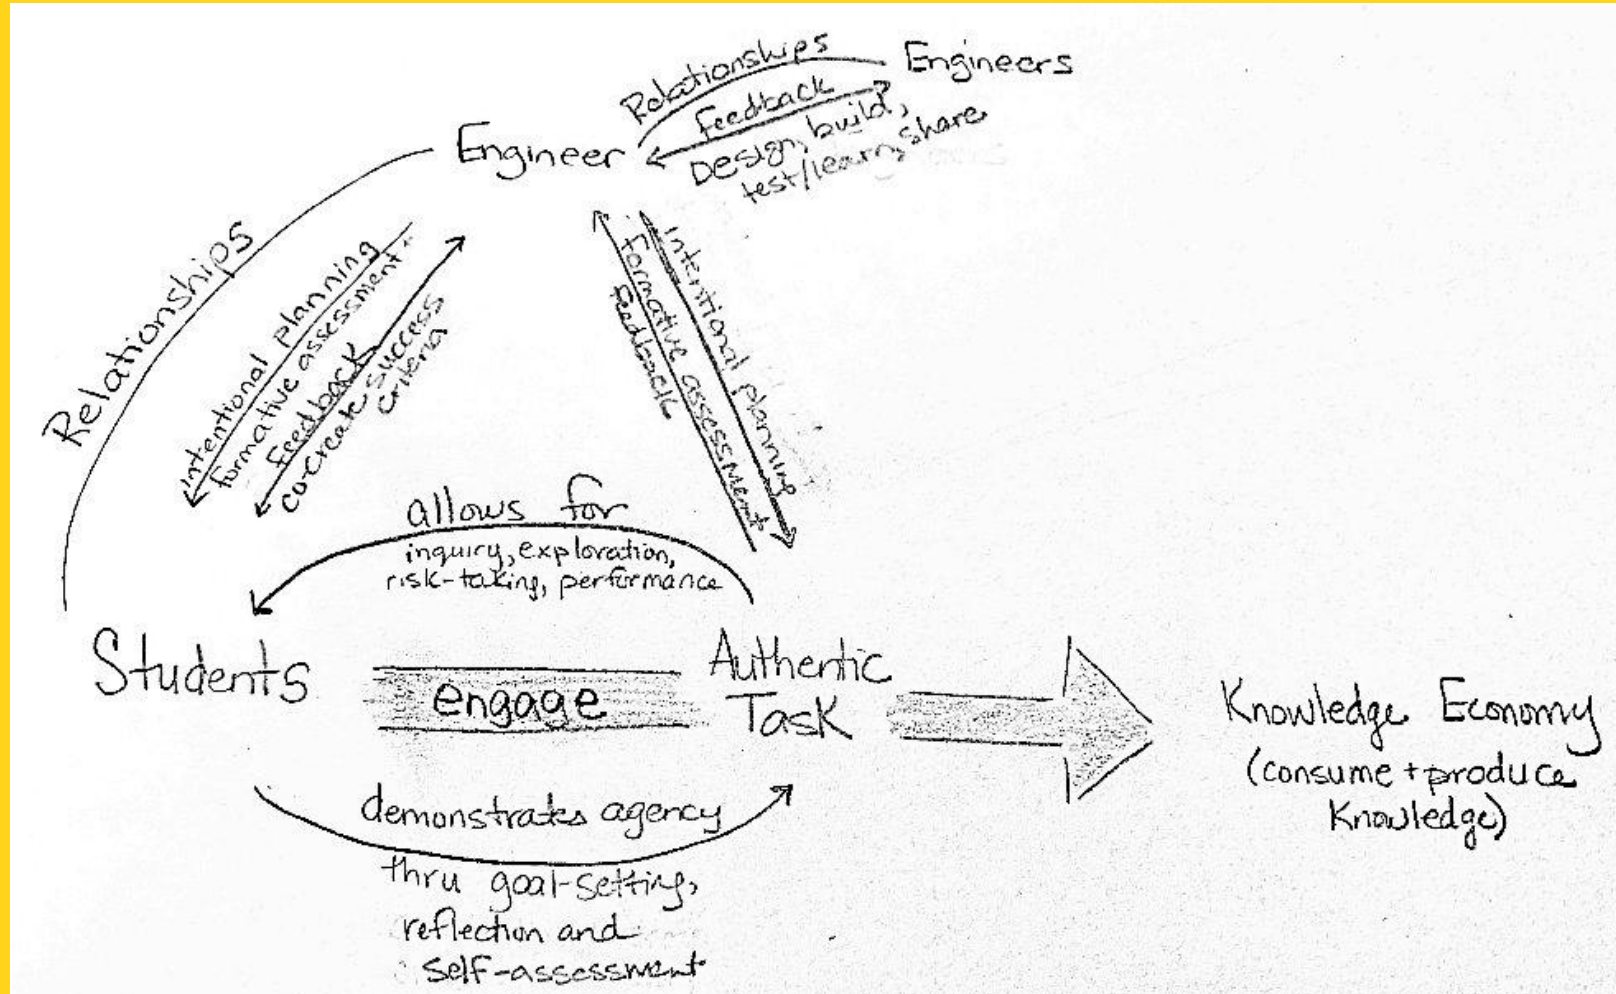 Relationships
Engineers
Feedback
Engineer
Design, build,
test/learn, share
Relationships
intentional planning
formative assessment +
Feedback
co-create success
criteria
intentional planning
formative assessment
feedback
allows for
inquiry, exploration,
risk-taking, performance
Students
engage
Authentic
Task
Knowledge Economy
(consume + produce
Knowledge)
demonstrates agency
thru goal-setting,
reflection and
self-assessment